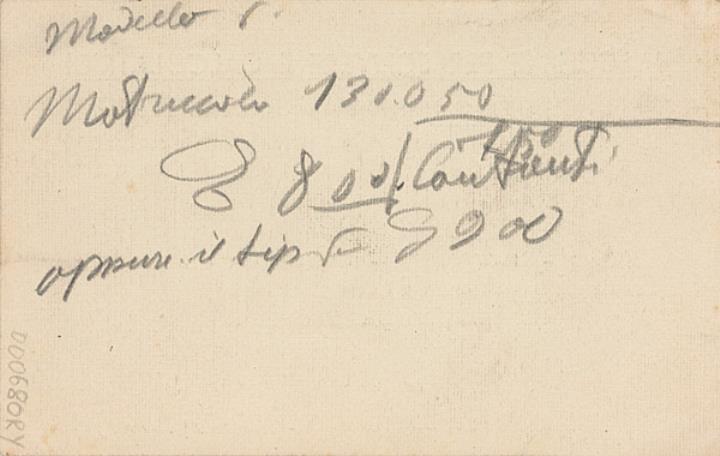 Modello
Matricola 130.050
150
800 Contanti
oppure il tipo 900
D00680RY